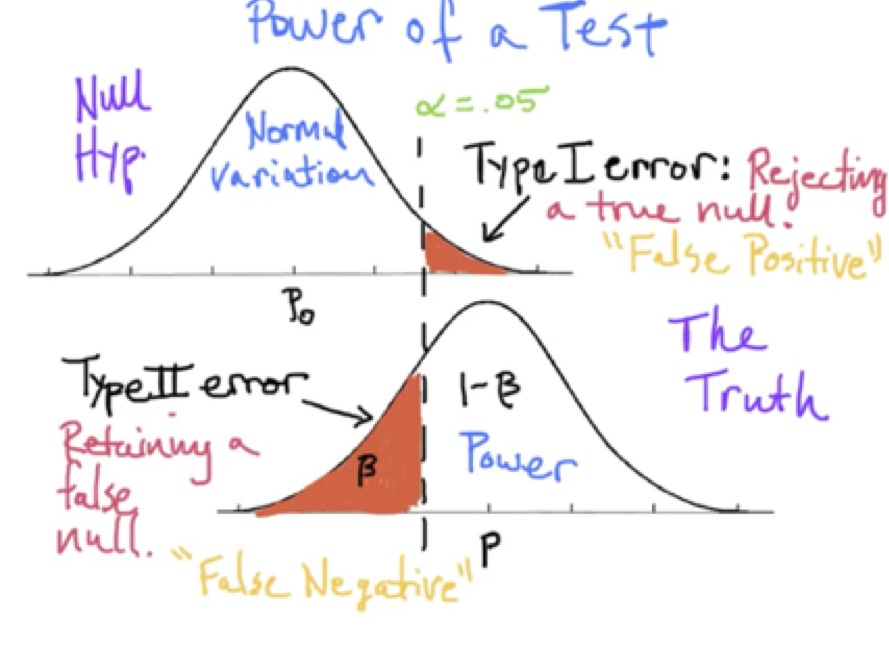 Power of a Test
Null
Hyp.
Normal
Variation
α=.05
Type I error: Rejecting
a true null.
"False Positive"
P₀
The
Truth
Type II error
Retaining a
false
null.
β
1-β
Power
P
"False Negative"